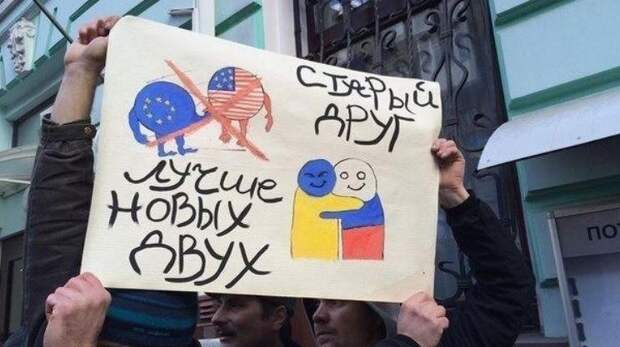 СТАРЫЙ
ДРУГ
ЛУЧШЕ
НОВЫХ
ДВУХ